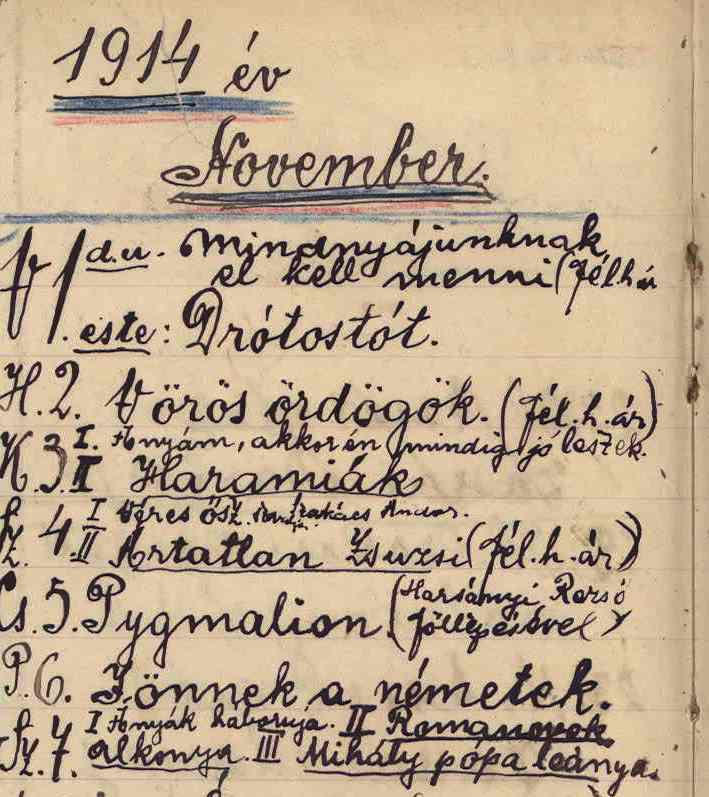 1914 év
November.
V 1 d.u. Mindnyájunknak
el kell menni (fél.h.ár
. este: Drótostót.
H. 2. Vörös ördögök. (fél.h.ár)
I. Anyám, akkor én mindig jó leszek.
K. 3. II Haramiák
I Véres ősz. Andor.
Sz. 4. II Ártatlan Zsuzsi (fél.h.ár)
Cs. 5. Pygmalion. (Harsányi Rezső
fölléptével)
P. 6. Jönnek a németek.
I Anyák háboruja. II Romanovok
Sz. 7. alkonya. III Mihály pópa leánya.